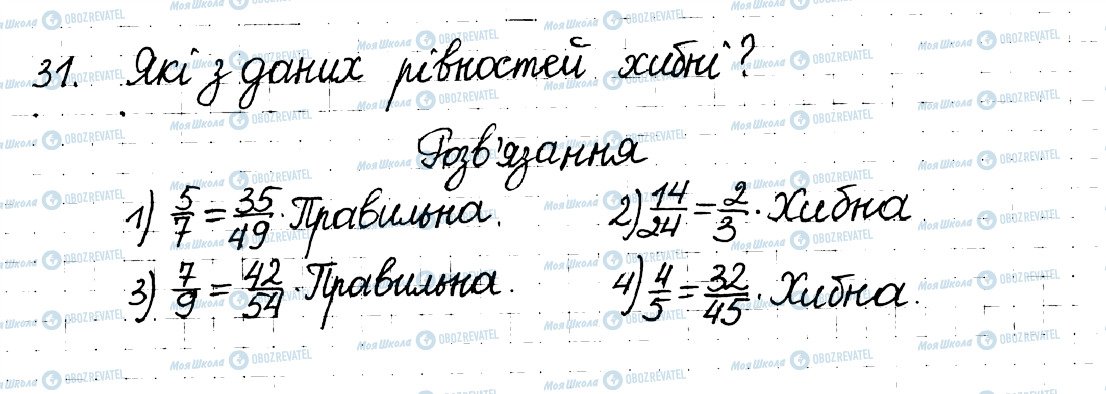 31. Які з даних рівностей хибні?
Розв'язання
1) 5/7 = 35/49. Правильна. 2) 14/24 = 2/3. Хибна.
3) 7/9 = 42/54. Правильна. 4) 4/5 = 32/45. Хибна.